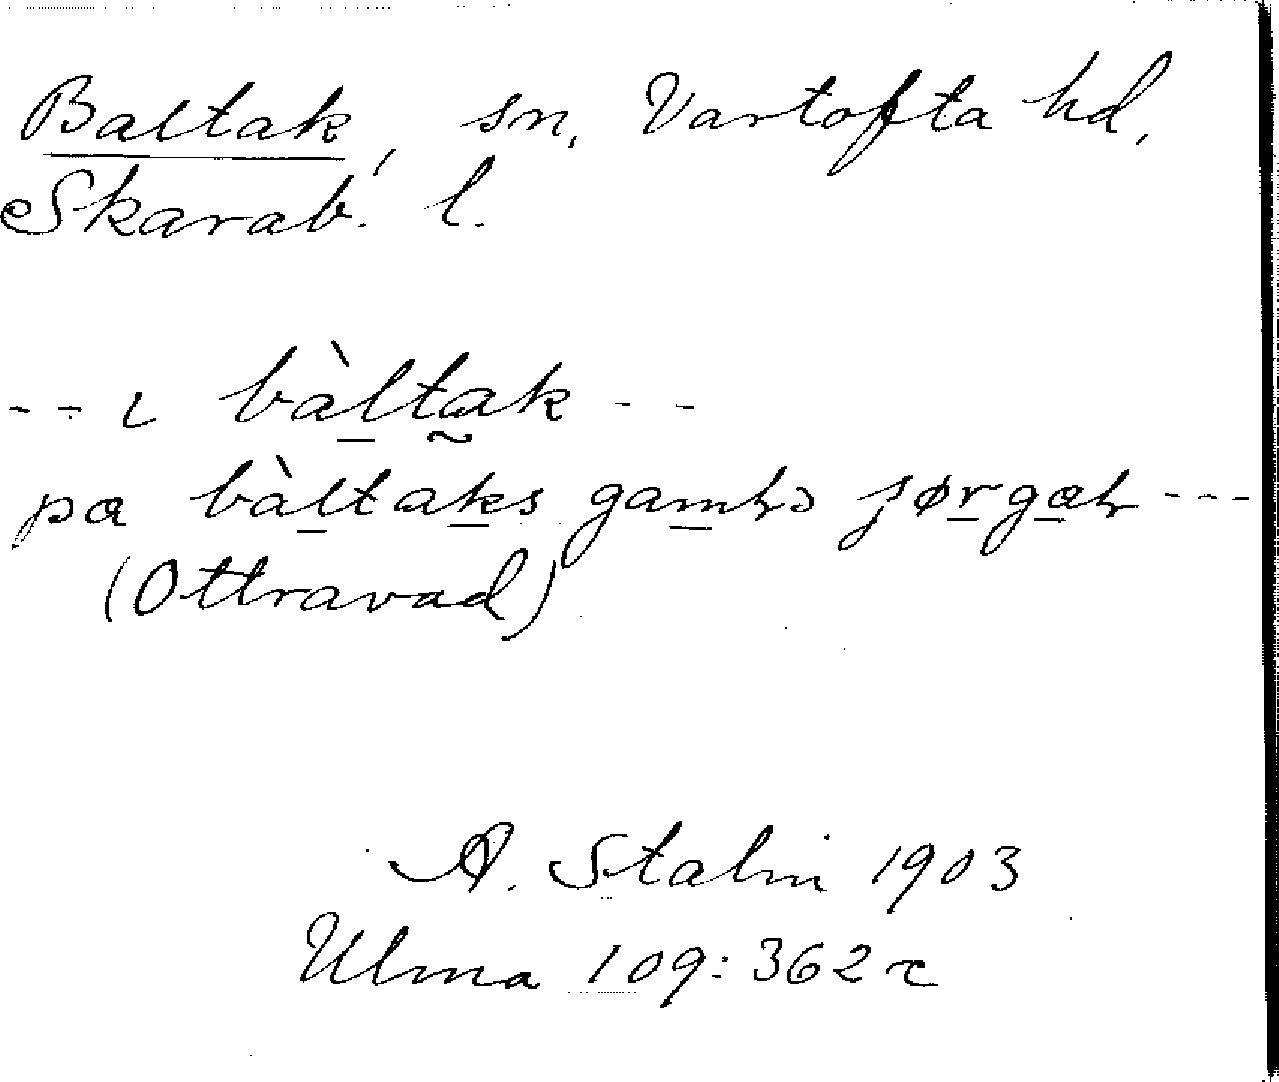 Baltak, sn, Vartofta hd,
Skarab. l.
-- ɩ bàltak --
pa bàltaks gamḷɔ jørgæɬ ---
(Ottravad)
A. Stalin 1903
Ulma 109:362 c